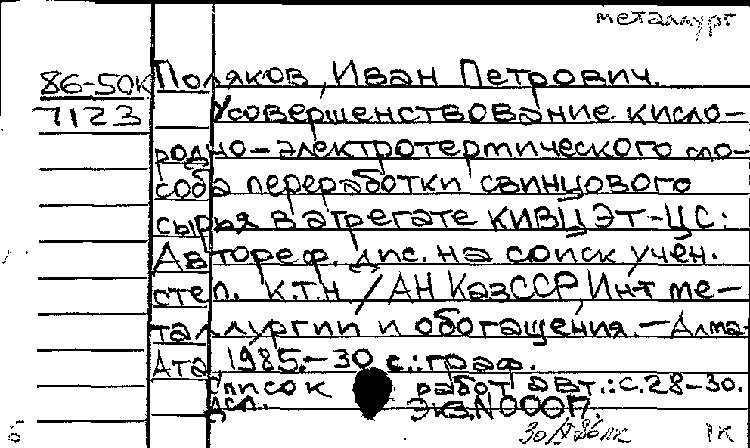 металлург
86-50к Поляков, Иван Петрович.
7123 Усовершенствование кисло-
родно-электротермического спо-
соба переработки свинцового
сырья в агрегате КИВЦЭТ-ЦС:
Автореф. дис. на соиск учён.
степ. к.т.н / АН КазССР, Инт ме-
таллургии и обогащения. - Алма-
Ата, 1985. - 30 с.: граф.
Список работ авт.: с. 28-30.
ДСП. Экз. N 000П.
1К